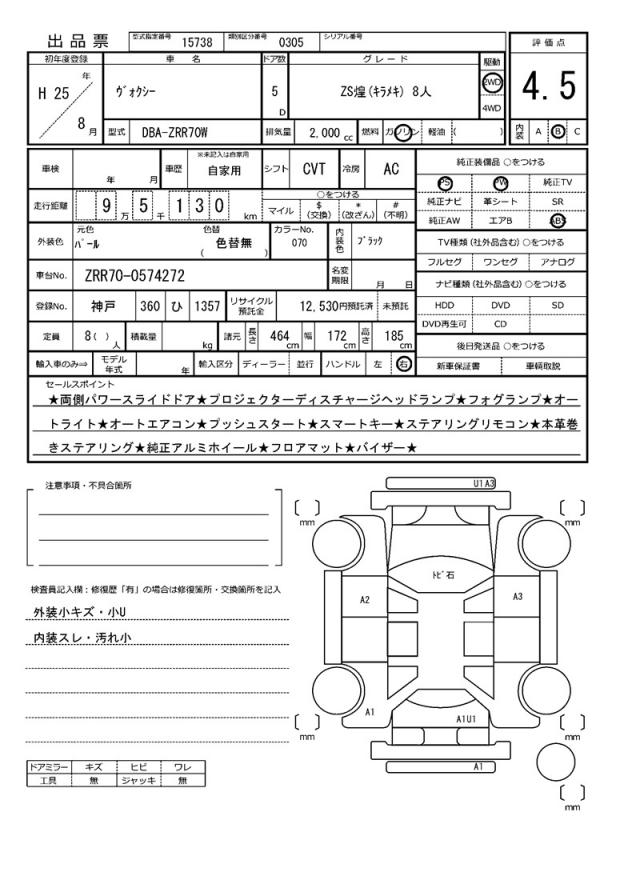 出品票 型式指定番号 15738 類別区分番号 0305 シリアル番号
評価点
初年度登録 車名 ドア数 グレード 駆動
H 25 年 8 月 ヴォクシー 5 D ZS煌(キラメキ) 8人 2WD 4WD
4.5
型式 DBA-ZRR70W 排気量 2,000 cc 燃料 ガソリン 軽油 ( ) 内装 A B C
車検 年 月 車歴 ※未記入は自家用 自家用 シフト CVT 冷房 AC
純正装備品 ○をつける
PS PW 純正TV
走行距離 9 万 5 千 1 3 0 km ○をつける マイル $ (交換) * (改ざん) # (不明)
純正ナビ 革シート SR
純正AW エアB ABS
外装色 元色 パール 色替 色替無 ( ) カラーNo. 070 内装色 ブラック
TV種類 (社外品含む) ○をつける
フルセグ ワンセグ アナログ
車台No. ZRR70-0574272 名変期限 月 日
ナビ種類 (社外品含む) ○をつける
登録No. 神戸 360 ひ 1357 リサイクル預託金 12,530円預託済 未預託
HDD DVD SD
DVD再生可 CD
定員 8( ) 人 積載量 kg 諸元 長さ 464 cm 幅 172 cm 高さ 185 cm
後日発送品 ○をつける
輸入車のみ⇒ モデル年式 年 輸入区分 ディーラー 並行 ハンドル 左 右
新車保証書 車輌取説
セールスポイント
★両側パワースライドドア★プロジェクターディスチャージヘッドランプ★フォグランプ★オー
トライト★オートエアコン★プッシュスタート★スマートキー★ステアリングリモコン★本革巻
きステアリング★純正アルミホイール★フロアマット★バイザー★
注意事項・不具合箇所
U1A3
mm mm
検査員記入欄：修復歴「有」の場合は修復箇所・交換箇所を記入
トビ石
外装小キズ・小U
A2 A3
内装スレ・汚れ小
A1 A1U1
mm mm
A1
ドアミラー キズ ヒビ ワレ
工具 無 ジャッキ 無
mm